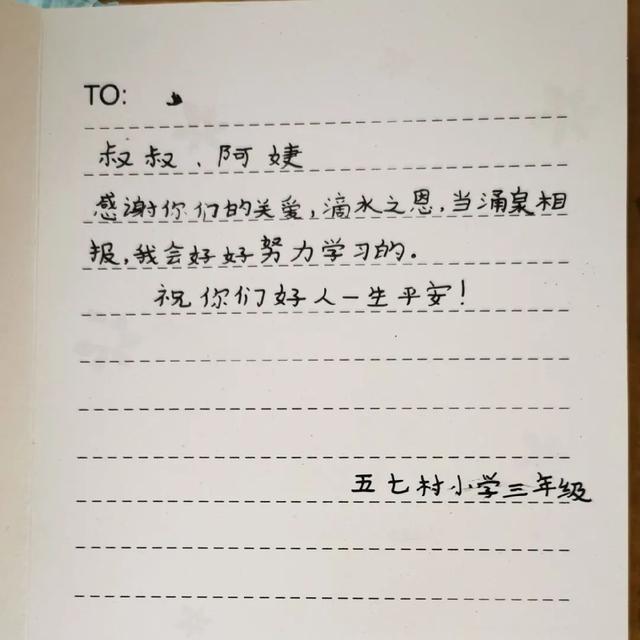 TO:
叔叔、阿婕
感谢你们的关爱,滴水之恩,当涌泉相
报,我会好好努力学习的。
祝你们好人一生平安!
五七村小学三年级